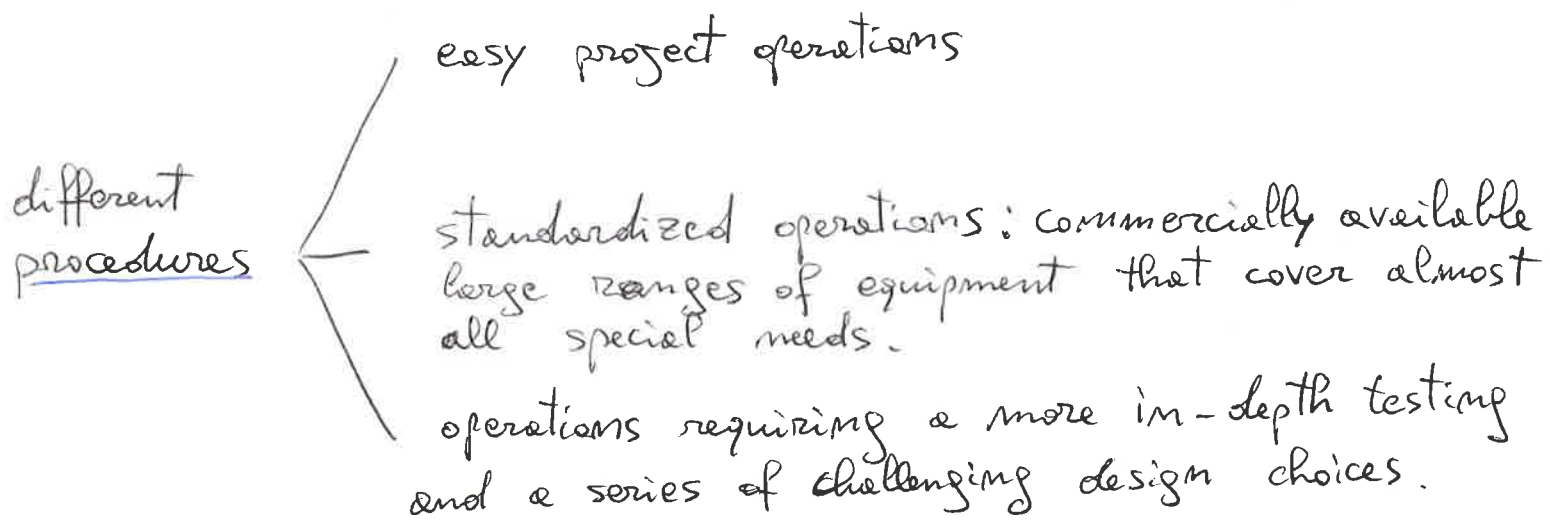 easy project operations
different
procedures
standardized operations: commercially available
large ranges of equipment that cover almost
all special needs.
operations requiring a more in-depth testing
and a series of challenging design choices.